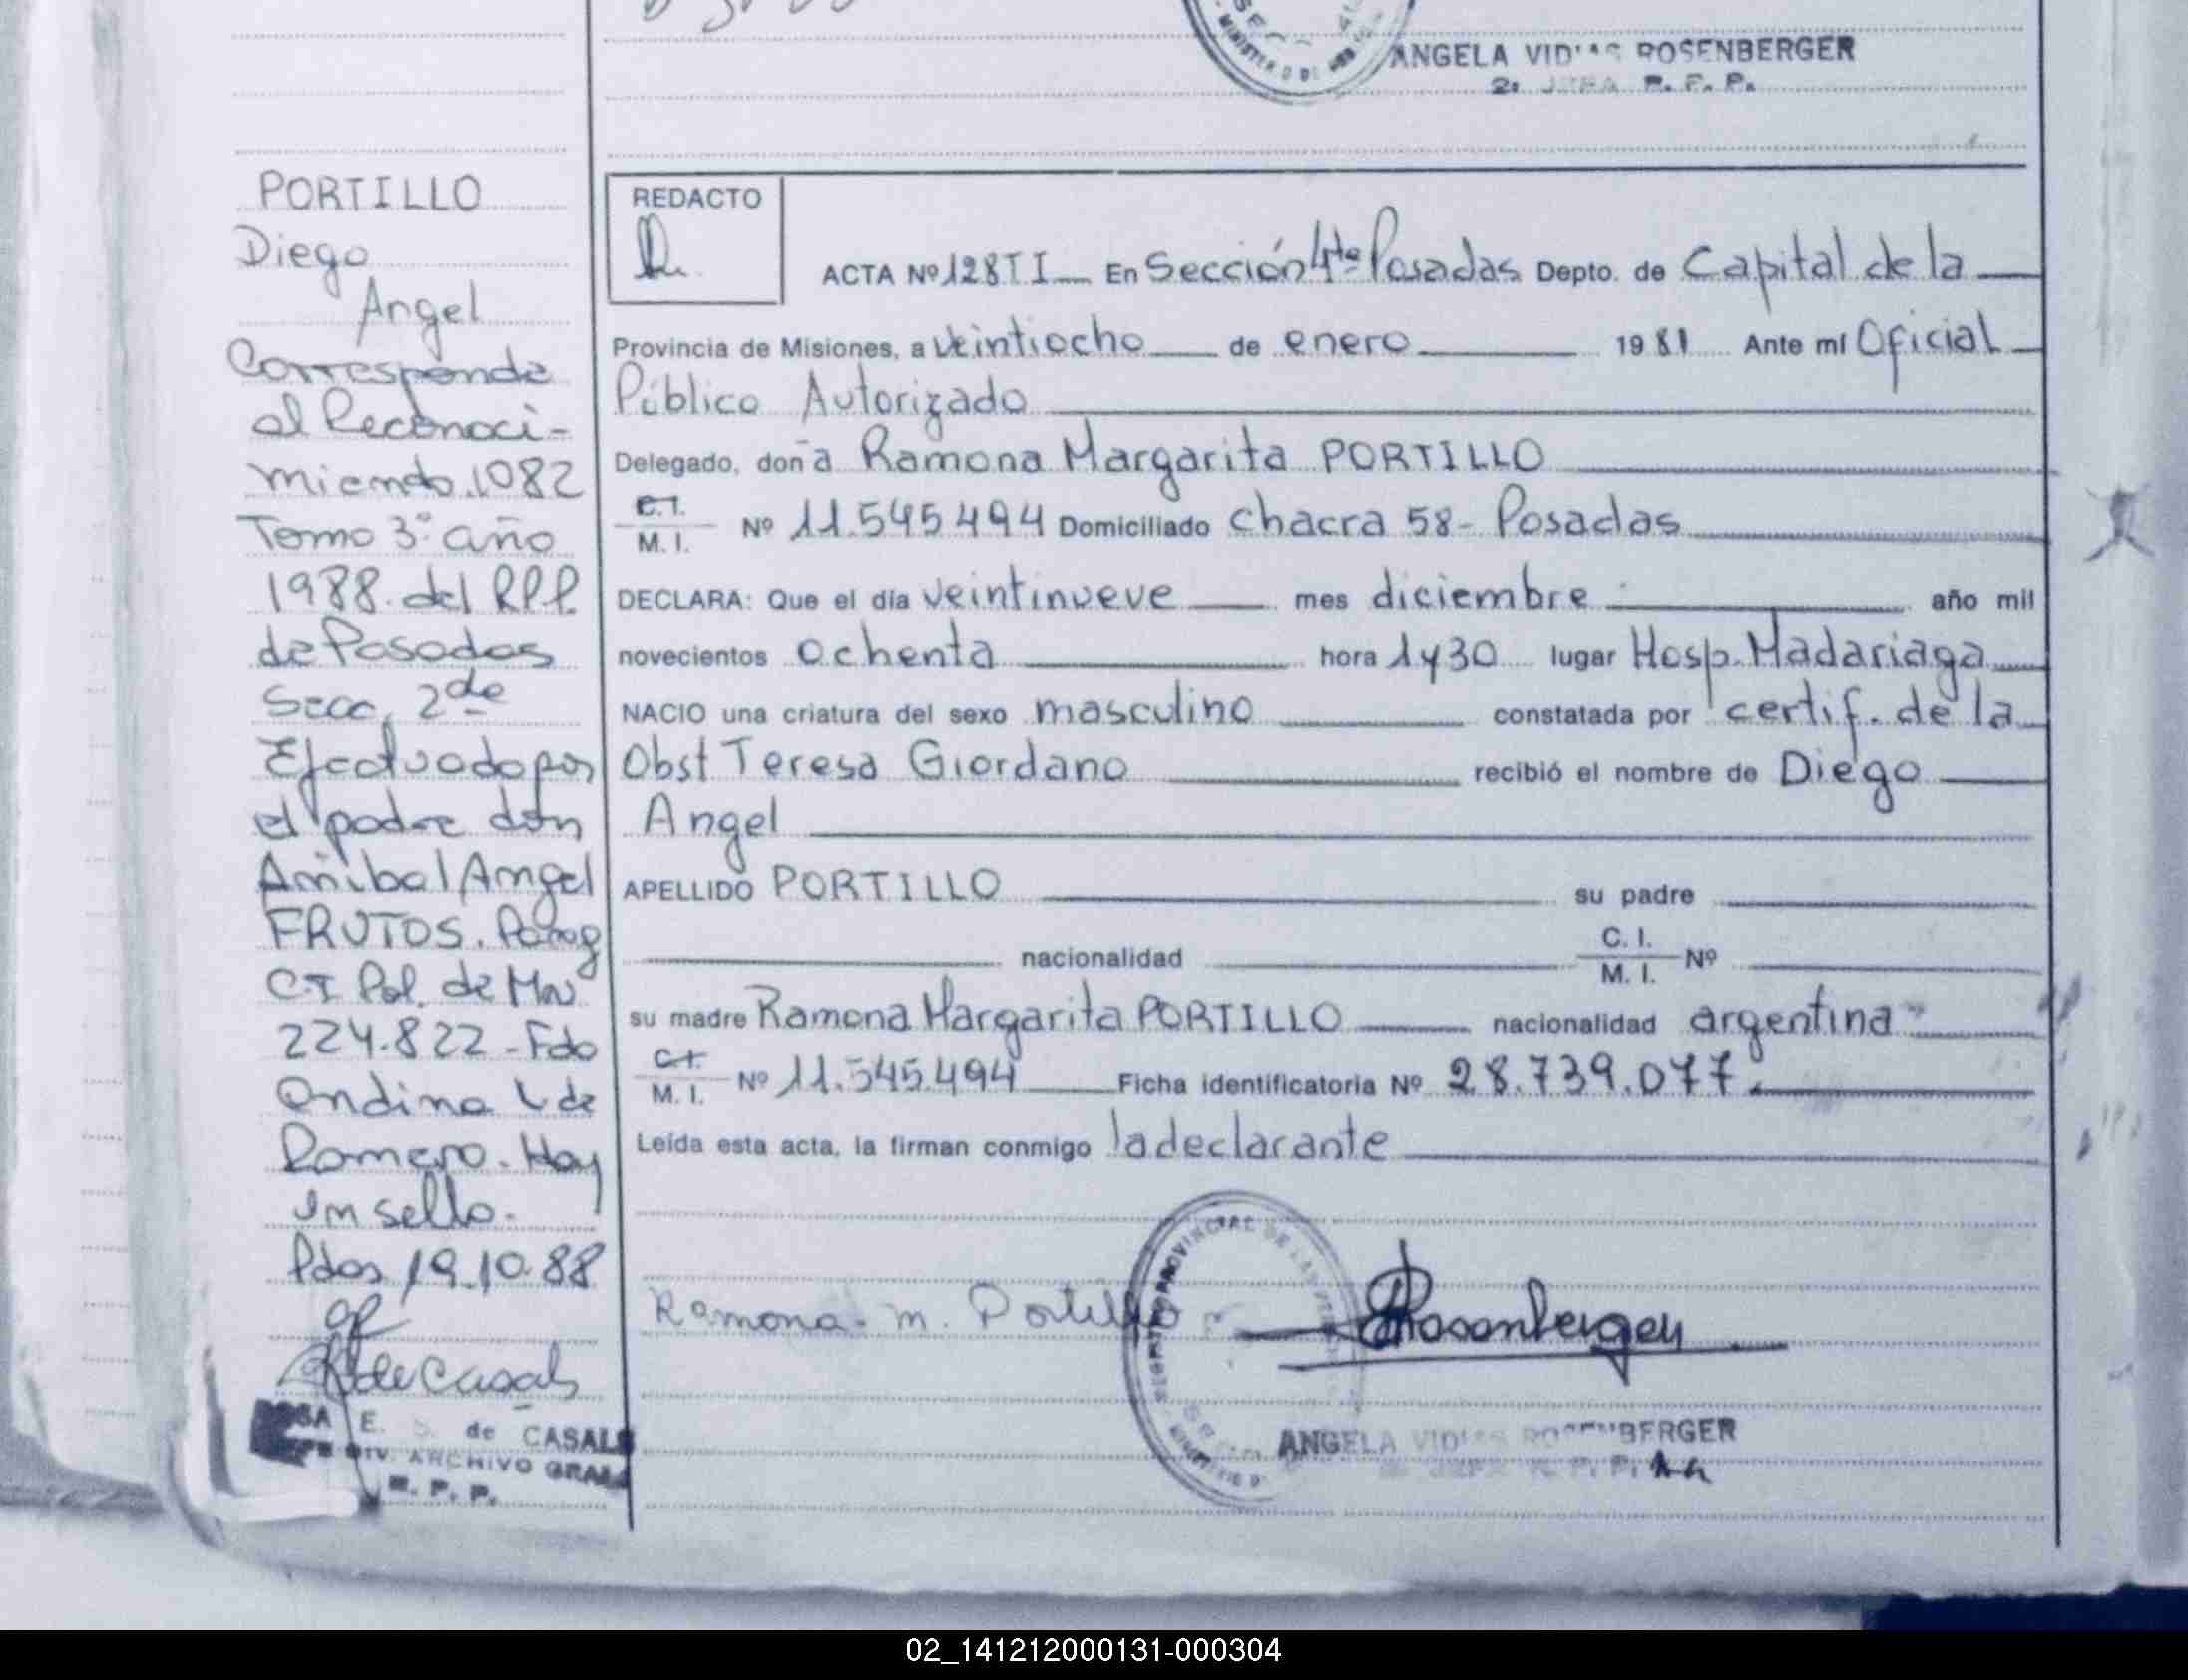 ANGELA VIDIAS ROSENBERGER
2ª JEFA R. P. P.
PORTILLO
Diego
Angel
Corresponde
al Reconoci-
miento 1082
Tomo 3º año
1988 del R.P.P.
de Posadas
Secc, 2da
Efectuado por
el padre don
Anibal Angel
FRUTOS. Parag
C.I Pol. de Mns
224.822 - Fdo
Ondina L de
Romero. Hay
un sello.
Pdas 19.10.88
R de Casals
ROSA E. S. de CASALS
JEFE DIV. ARCHIVO GRAL.
R. P. P.
REDACTO
ACTA Nº 128 T I En Sección 4ta Posadas Depto. de Capital de la
Provincia de Misiones, a veintiocho de enero 1981 Ante mí Oficial
Público Autorizado
Delegado, doña Ramona Margarita PORTILLO
C.I. M. I. Nº 11.545494 Domiciliado Chacra 58- Posadas
DECLARA: Que el día veintinueve mes diciembre año mil
novecientos ochenta hora 1y30 lugar Hosp. Madariaga
NACIO una criatura del sexo masculino constatada por certif. de la
Obst Teresa Giordano recibió el nombre de Diego
Angel
APELLIDO PORTILLO su padre
nacionalidad C. I. M. I. Nº
su madre Ramona Margarita PORTILLO nacionalidad argentina
C.I. M. I. Nº 11.545.494 Ficha identificatoria Nº 28.739.077.
Leída esta acta, la firman conmigo la declarante
Ramona. m. Portillo Rosenberger
ANGELA VIDIAS ROSENBERGER
02_141212000131-000304